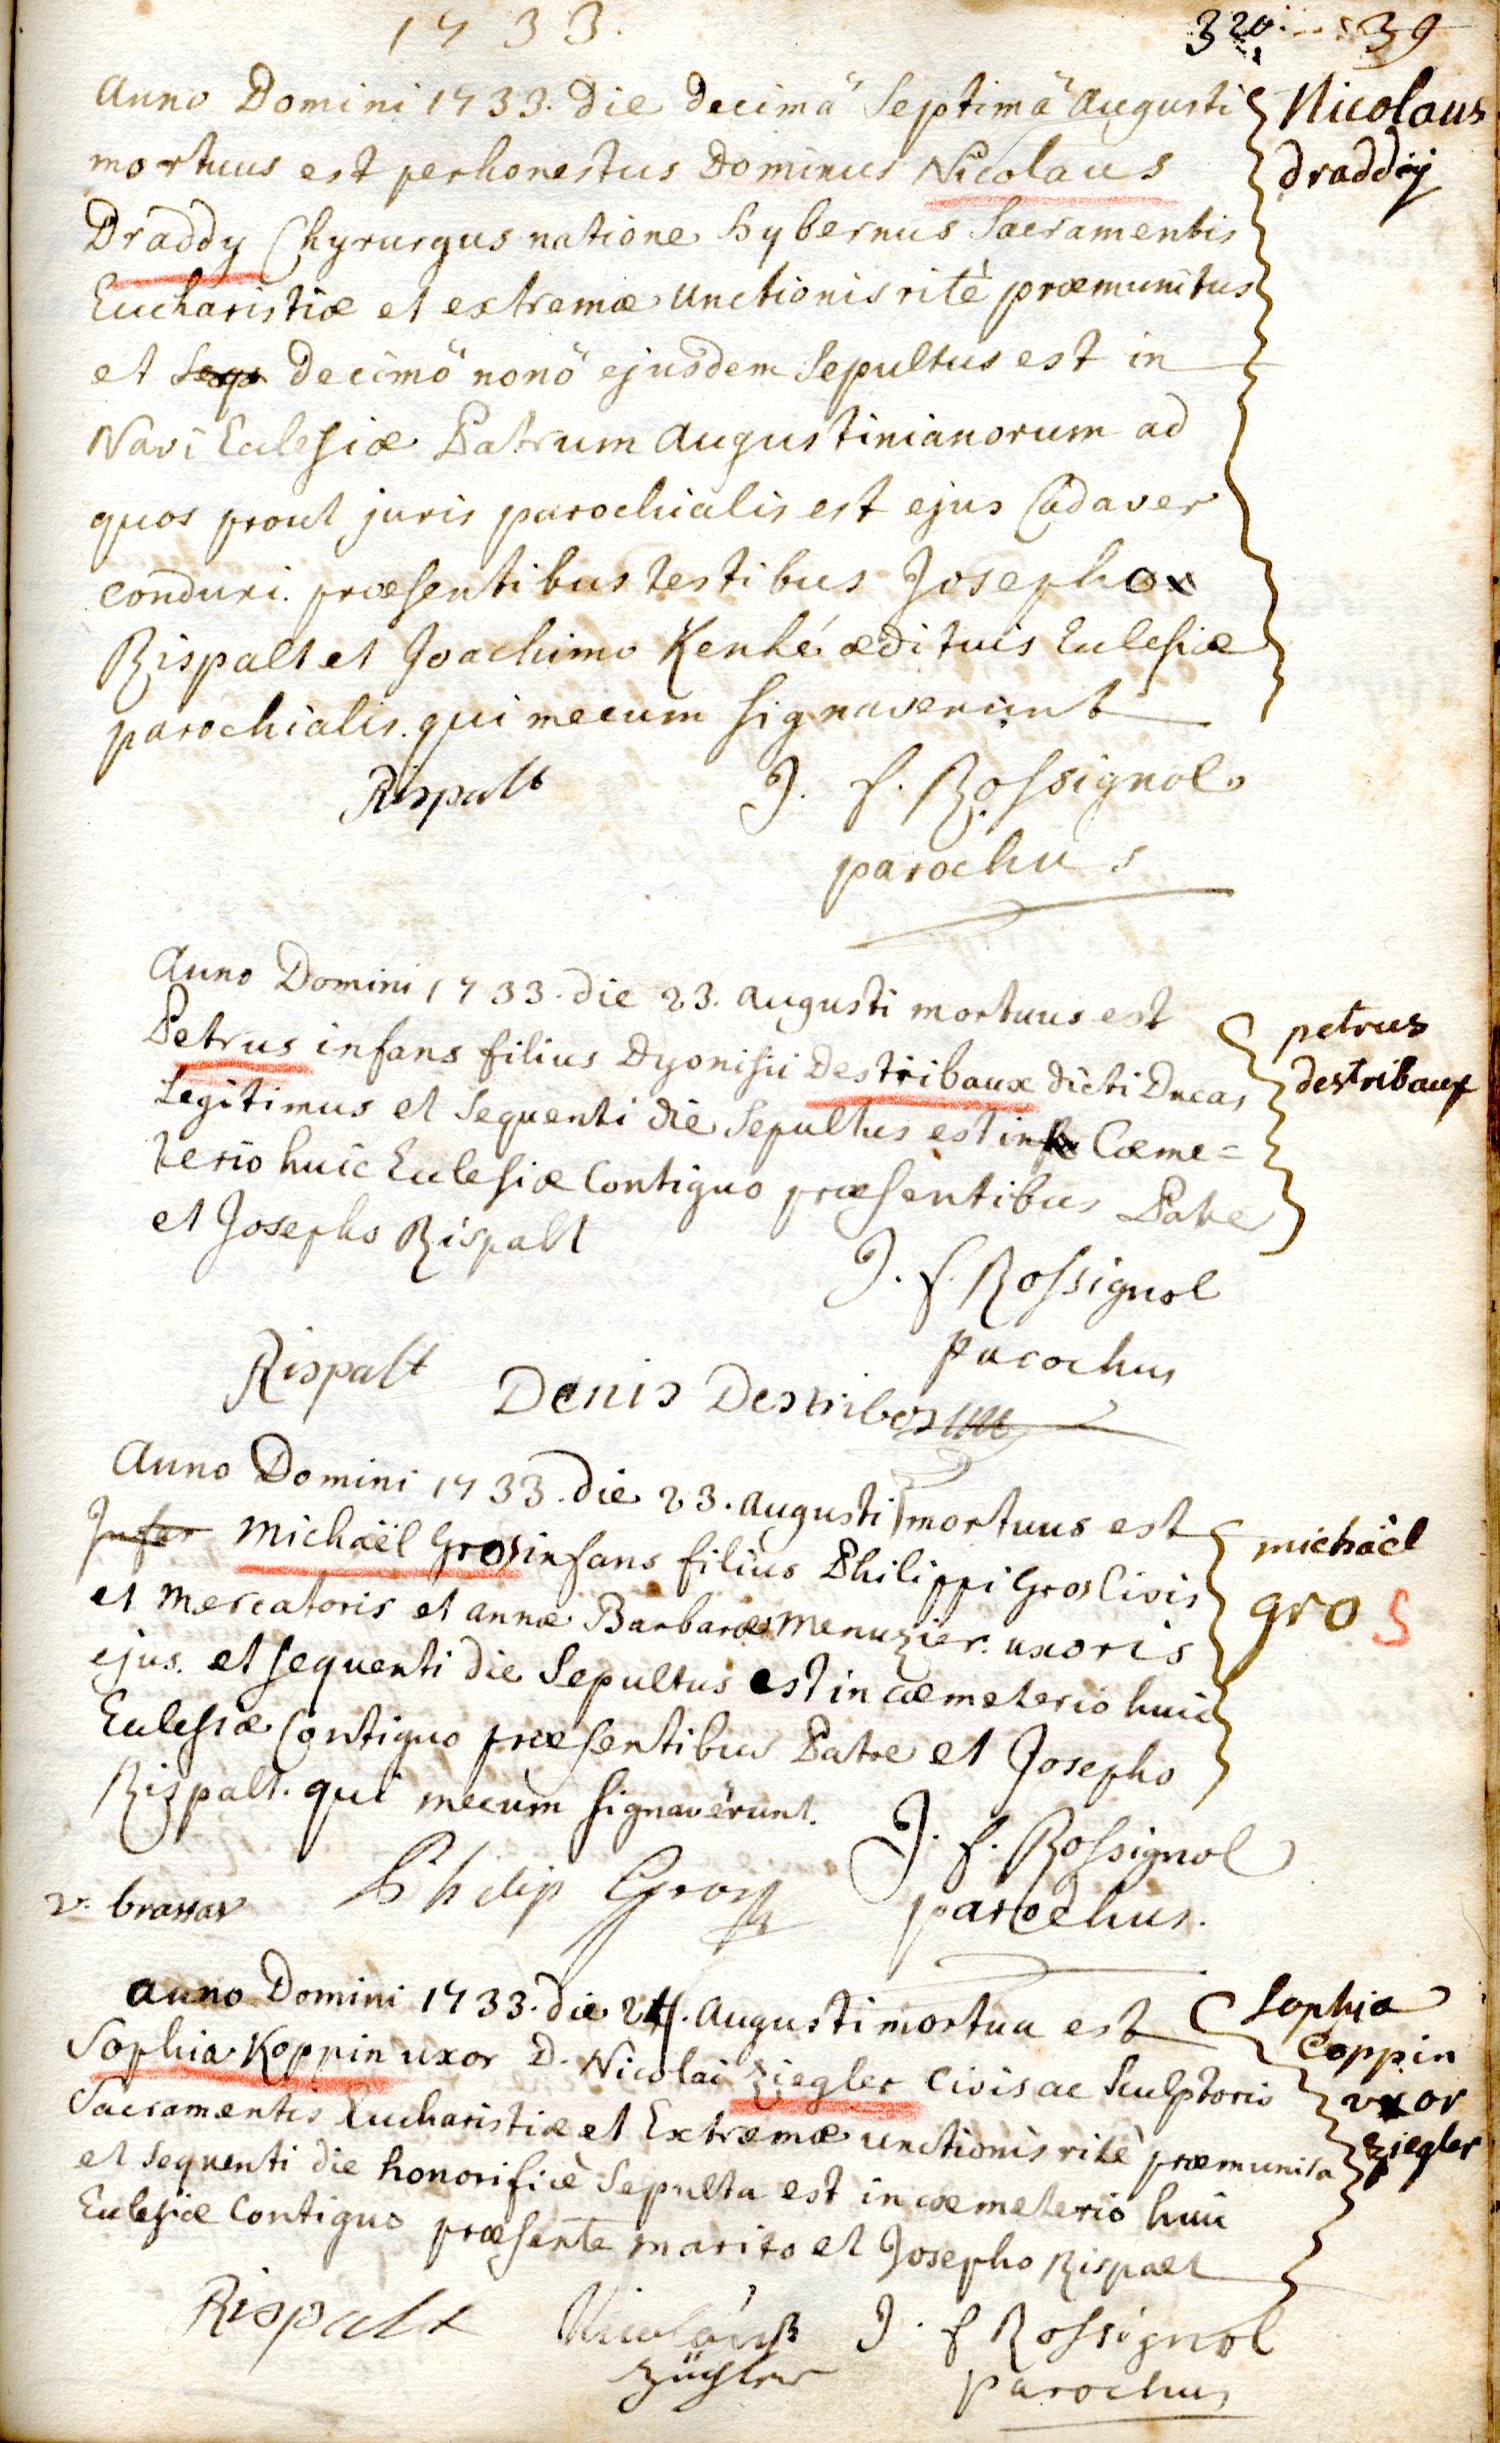 1733.
320. 39
Anno Domini 1733. die decimâ Septimâ Augusti
mortuus est perhonestus Dominus Nicolaus
Draddy Chyrurgus natione hybernus Sacramentis
Eucharistiæ et extremæ Unctionis ritè præmunitus
et decimô nonô ejusdem Sepultus est in
Navi Eclesiæ Patrum Augustinianorum ad
quos prout juris parochialis est ejus Cadaver
conduxi. præsentibus testibus Josepho
Rispalt et Joachimo Kenké ædituis Eclesiæ
parochialis. qui mecum signaverunt
Nicolaus
draddÿ
Rispalt J. f. Rossignol
parochus
Anno Domini 1733. die 23. augusti mortuus est
Petrus infans filius Dyonisii Destribaux dicti Ducas
Legitimus et Sequenti die Sepultus est in Cæme=
terio huic Eclesiæ Contiguo præsentibus Patre
et Josepho Rispalt
petrus
destribaux
J. f. Rossignol
parochus
Rispalt Denis
Anno Domini 1733. die 23. augusti mortuus est
Michaël Gros infans filius Philippi Gros Civis
et Mercatoris et annæ Barbaræ Menuzier. uxoris
ejus. et sequenti die Sepultus est in cæmeterio huic
Eclesiæ Contiguo præsentibus Patre et Josepho
Rispalt. qui mecum signaverunt.
michaël
gros
J. f. Rossignol
parochus.
Philip Gros
anno Domini 1733. die 24. Augusti mortua est
Sophia Koppin uxor D. Nicolai Ziegler Civis ac Sculptoris
Sacramentis Eucharistiæ et Extremæ unctionis ritè præmunita
et sequenti die honorificè Sepulta est in cæmeterio huic
Eclesiæ Contiguo præsente marito et Josepho Rispalt
Sophia
Coppin
vxor
ziegler
Rispalt Nicolaus J. f Rossignol
parochus